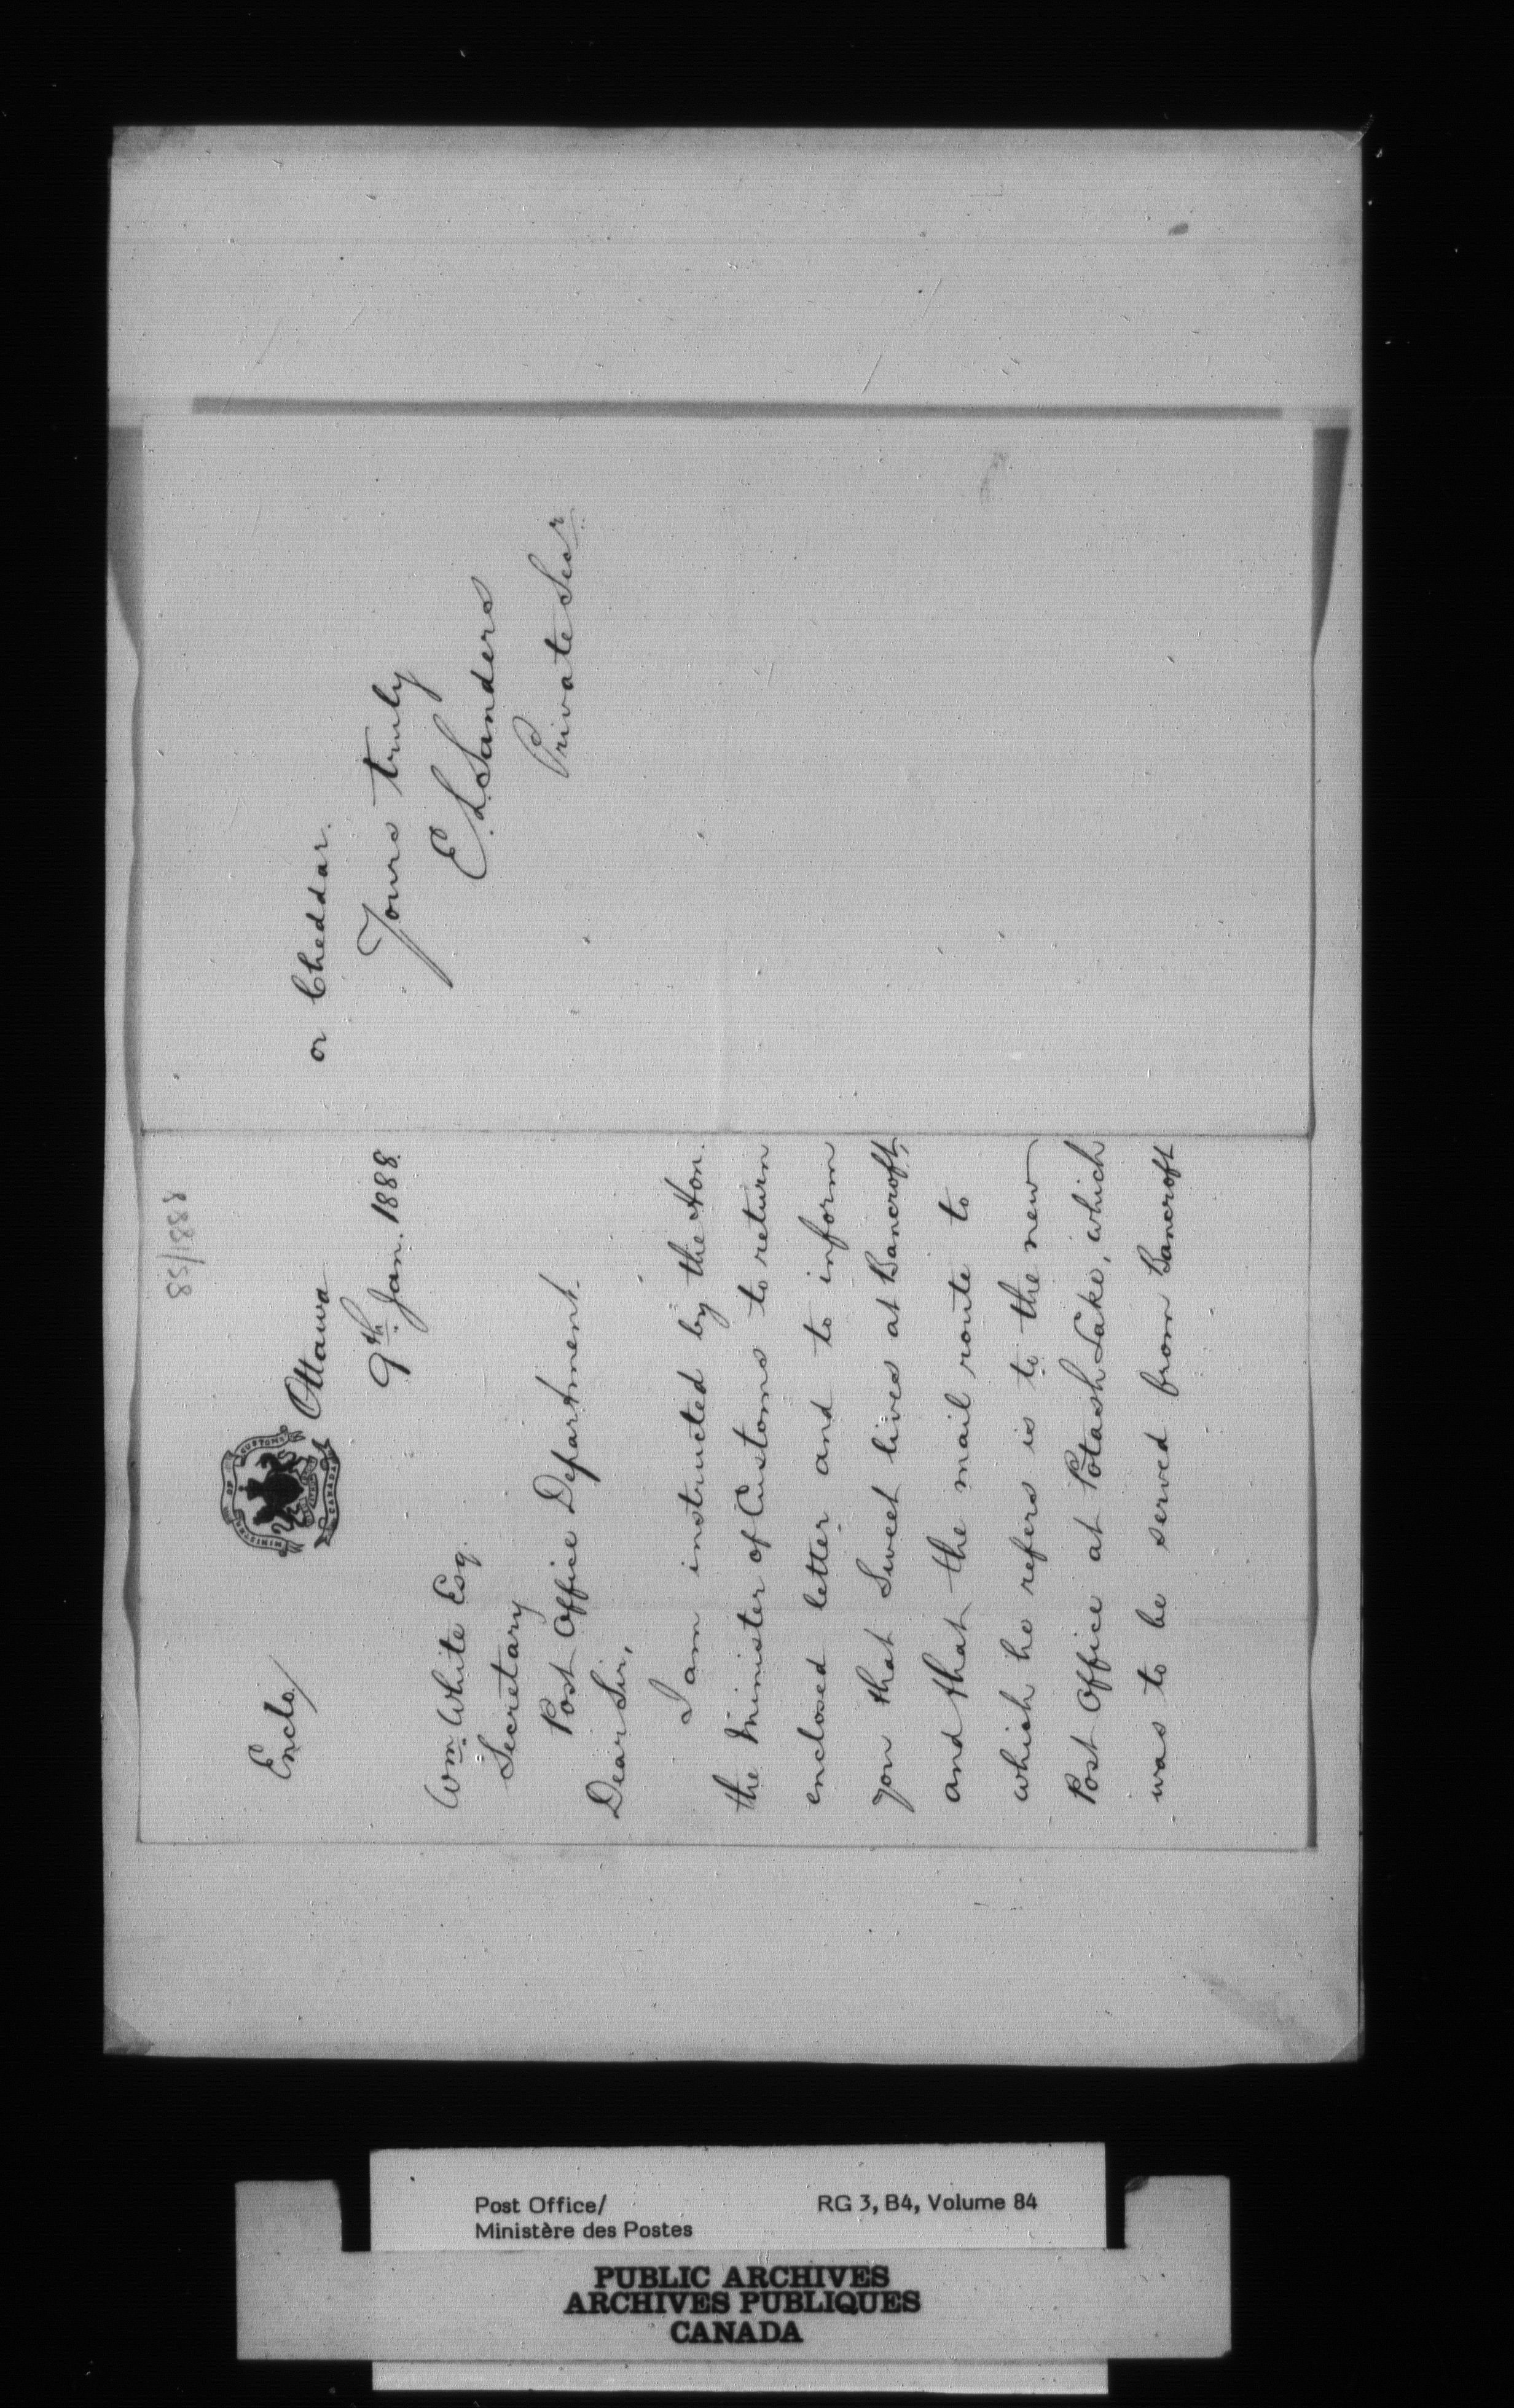 1888/58
Enclo/
MINISTER OF CUSTOMS
CANADA
Ottawa
9th Jan. 1888.
Wm. White Esq.
Secretary
Post Office Department.
Dear Sir,
I am instructed by the Hon.
the Minister of Customs to return
enclosed letter and to inform
you that Sweet lives at Bancroft,
and that the mail route to
which he refers is to the new
Post Office at Potash Lake, which
was to be served from Bancroft
or Cheddar.
Yours truly
E. L. Sanders
Private Secr
Post Office/
Ministère des Postes
RG 3, B4, Volume 84
PUBLIC ARCHIVES
ARCHIVES PUBLIQUES
CANADA